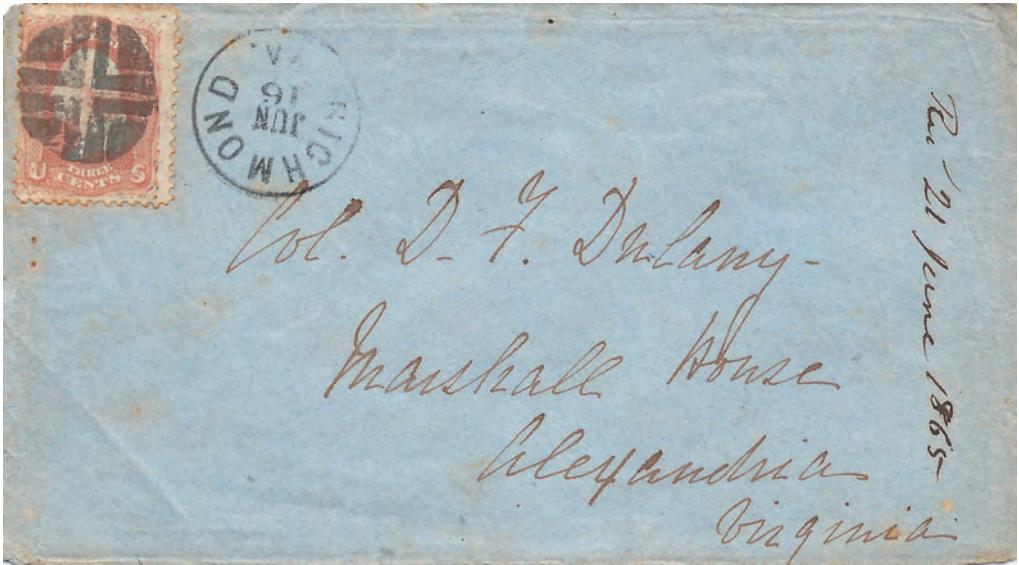 U S
THREE
CENTS
RICHMOND VA.
JUN
16
Col. D. F. Dulany-
Marshall House
Alexandria
Virginia
Rec 21 June 1865